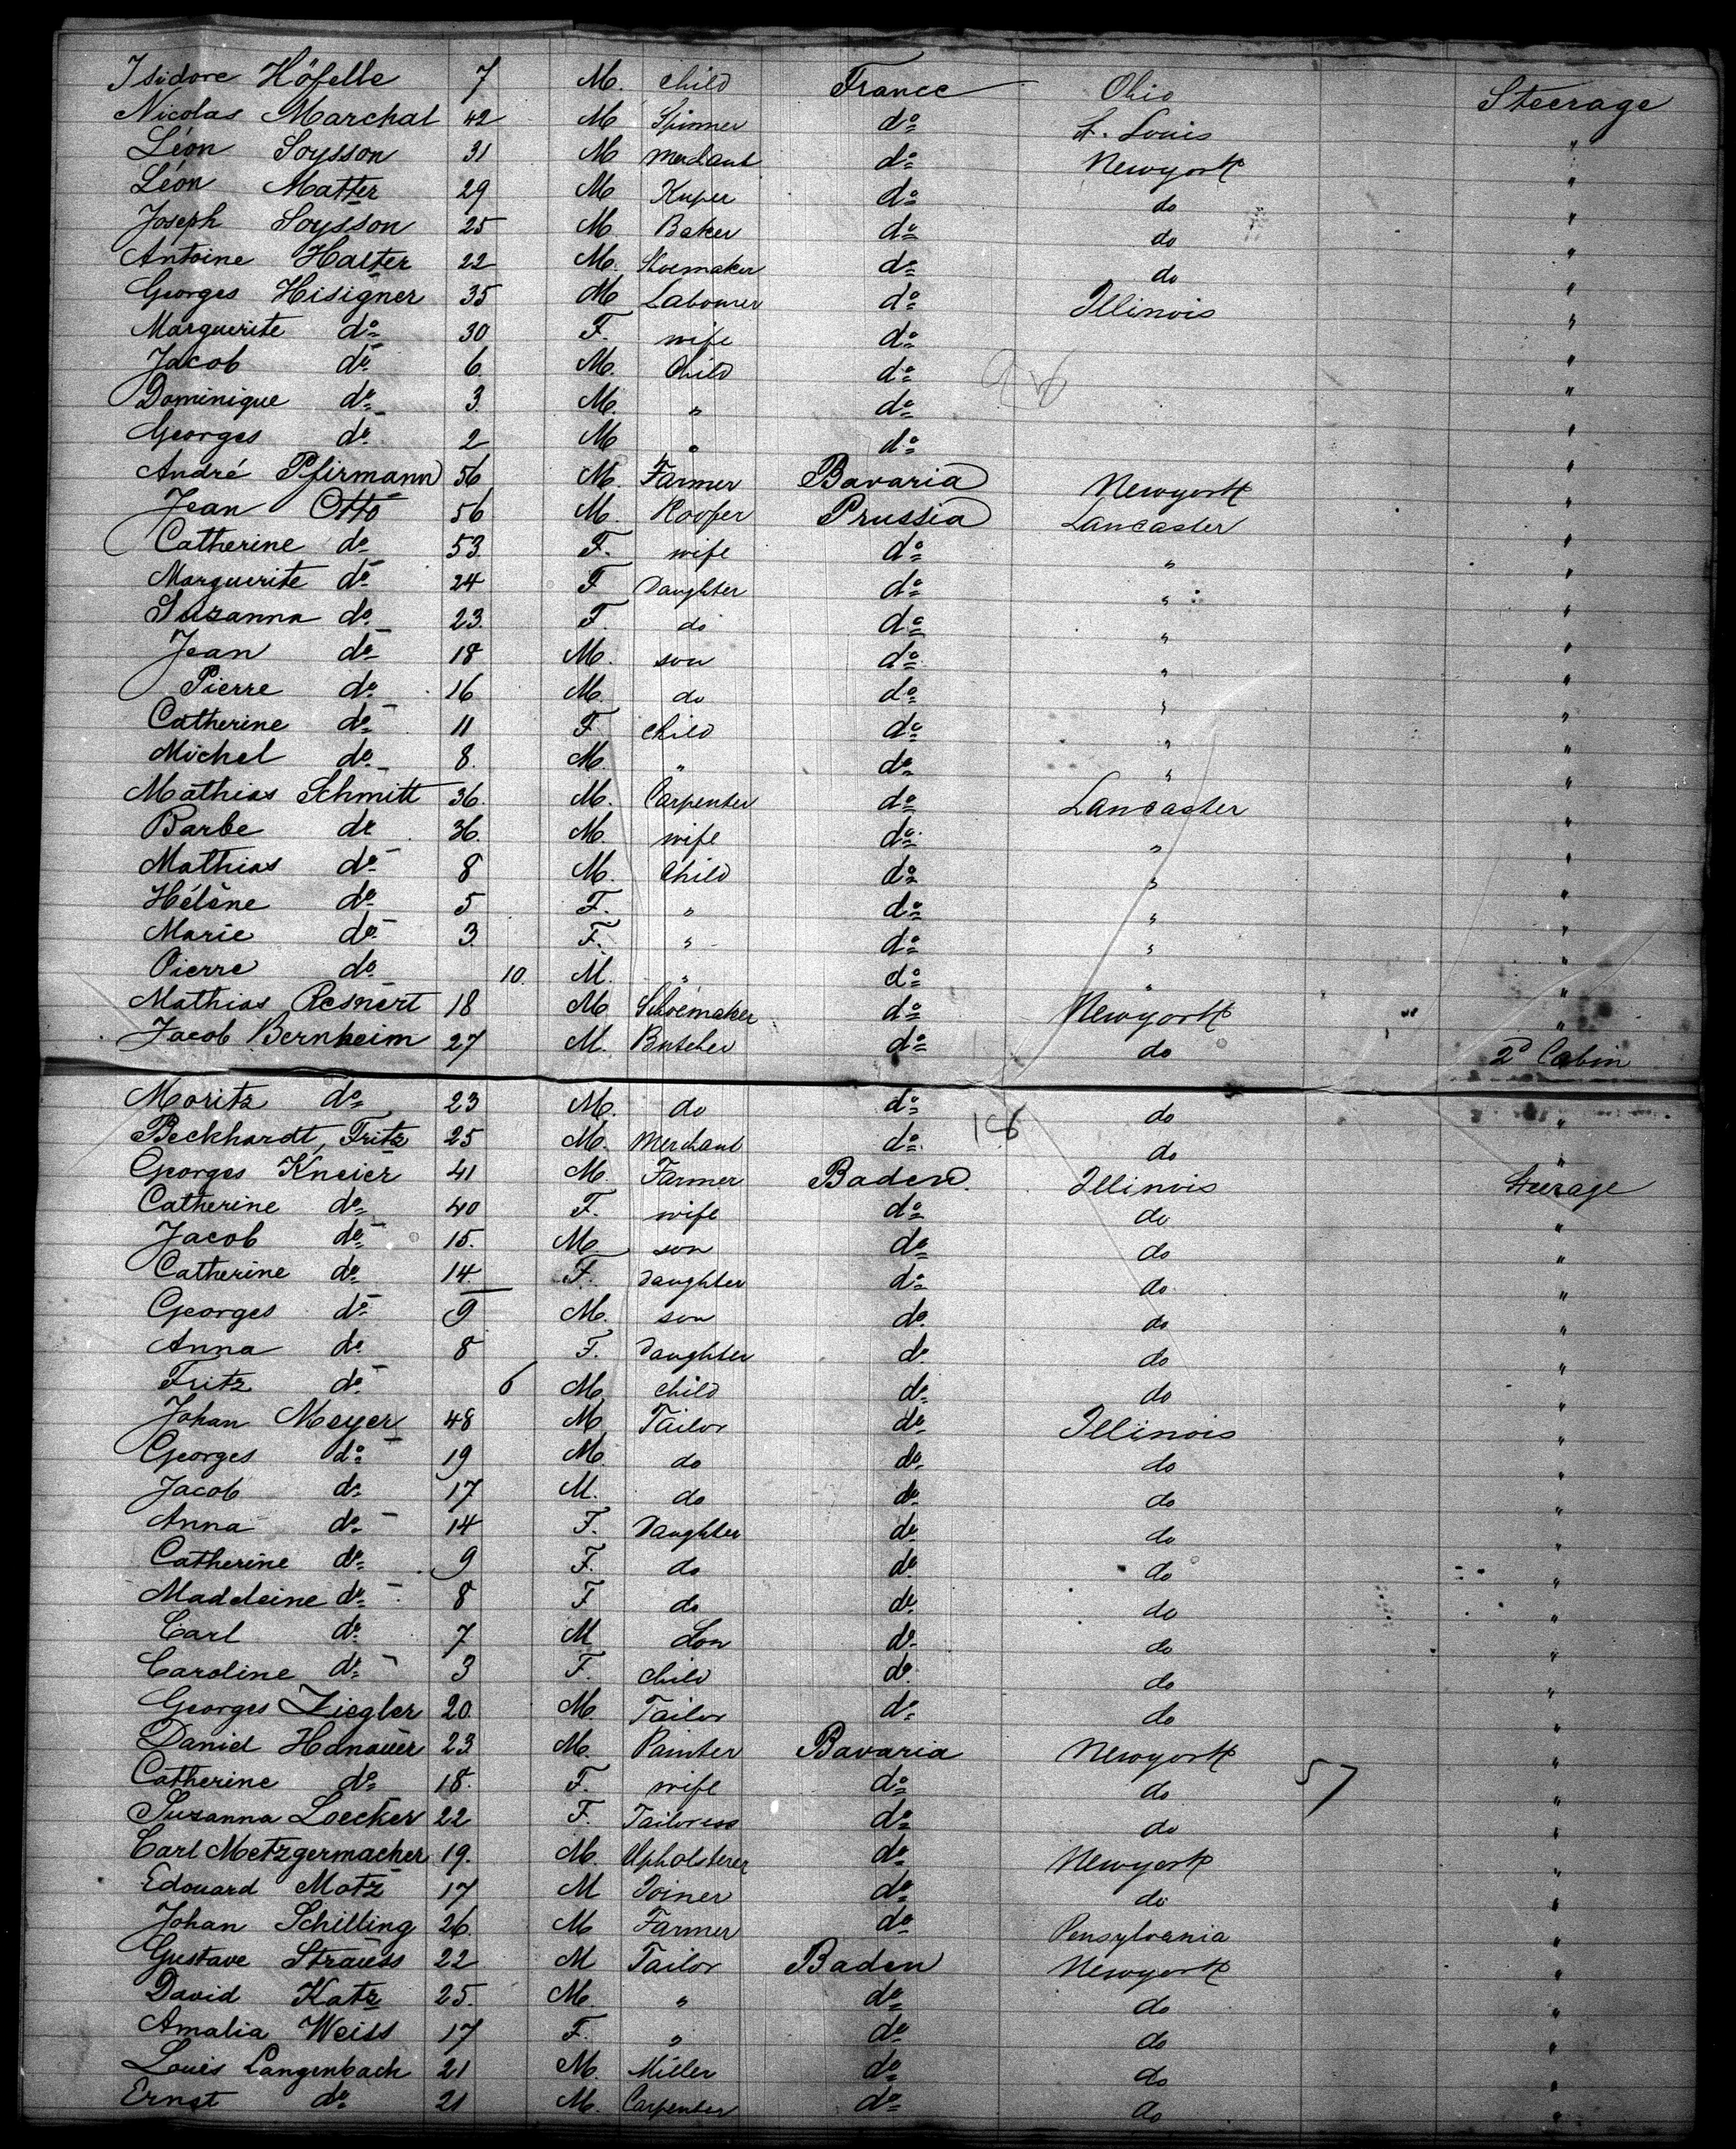 Isidore Höfelle 7 M. child France Ohio Steerage
Nicolas Marchal 42 M Spinner do St. Louis "
Léon Soysson 31 M merchant do Newyork "
Léon Matter 29 M Kuper do do "
Joseph Soysson 25 M. Baker do do "
Antoine Halter 22 M. Shoemaker do do "
Georges Hisigner 35 M Labourer do Illinois "
Marguerite do 30 F. wife do "
Jacob do 6. M. Child do "
Dominique do 3. M. " do "
Georges do 2 M " do "
André Pfirmann 56 M. Farmer Bavaria Newyork "
Jean Otto 56 M. Roofer Prussia Lancaster "
Catherine do 53. F. wife do " "
Marguerite do 24 F Daughter do " "
Suzanna do 23. F. do do " "
Jean do 18 M. son do " "
Pierre do 16 M. do do " "
Catherine do 11 F child do " "
Michel do 8. M. " do " "
Mathias Schmitt 36. M. Carpenter do Lancaster "
Barbe do 36. M. wife do " "
Mathias do 8 M. Child do " "
Hélène do 5 F. " do " "
Marie do 3. F. " do " "
Pierre do 10. M. " do " "
Mathias Resnert 18 M Schoemaker do Newyork "
Jacob Bernheim 27 M. Butcher do do 2d Cabin
Moritz do 23 M. do do do "
Beckhardt, Fritz 25 M. Merchant do do "
Georges Kneier 41 M. Farmer Baden. Illinois Steerage
Catherine do 40 F. wife do do "
Jacob do 15. M. son do do "
Catherine do 14 F. Daughter do do "
Georges do 9 M. son do do "
Anna do 8 F. Daughter do do "
Fritz do 6 M. child do do "
Johan Meyer 48 M Tailor do Illinois "
Georges do 19 M. do do do "
Jacob do 17 M. do do do "
Anna do 14 F. Daughter do do "
Catherine do 9 F. do do do "
Madeleine do 8 F do do do "
Carl do 7 M Son do do "
Caroline do 3 F. child do do "
Georges Ziegler 20. M. Tailor do do "
Daniel Hanauer 23 M. Painter Bavaria Newyork "
Catherine do 18. F. wife do do 57 "
Suzanna Loecker 22 F. Tailoress do do "
Carl Metzgermacher 19. M. Upholsterer do Newyork "
Edouard Motz 17 M Joiner do do "
Johan Schilling 26. M Farmer do Pensylvania "
Gustave Strauss 22 M Tailor Baden Newyork "
David Katz 25. M. " do do "
Amalia Weiss 17 F. " do do "
Louis Langenbach 21 M. Miller do do "
Ernst do 21 M. Carpenter do do "